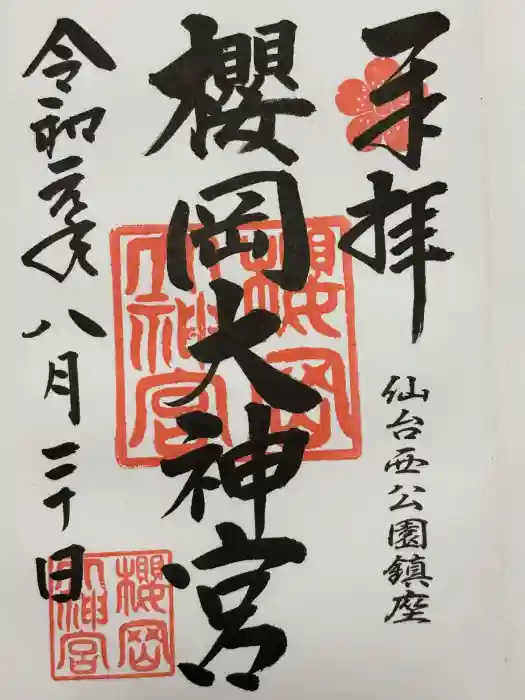 奉拝
仙台西公園鎮座
櫻岡大神宮
令和元年八月二十日
櫻岡大神宮
櫻岡大神宮